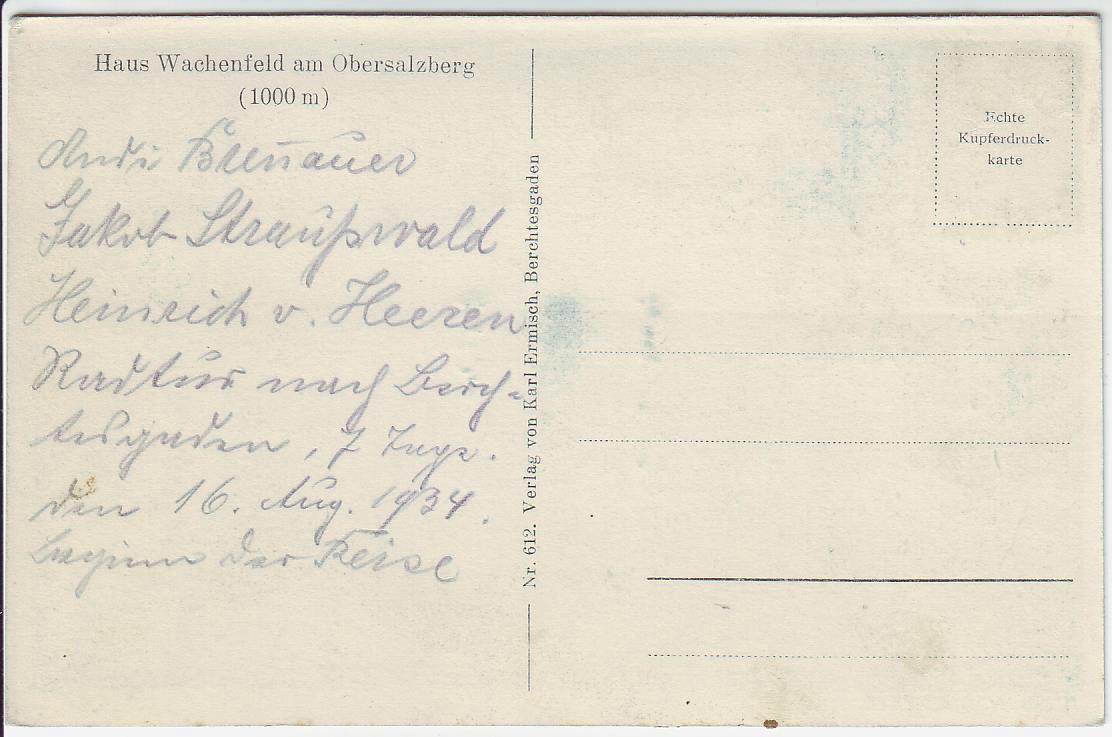 Haus Wachenfeld am Obersalzberg
(1000 m)
Andi Brenauer
Jakob Straußwald
Heinrich v. Heeren
Radtur nach Berch=
tesgaden, 7 Tage.
den 16. Aug. 1934.
Beginn der Reise
Nr. 612. Verlag von Karl Ermisch, Berchtesgaden
Echte
Kupferdruck-
karte